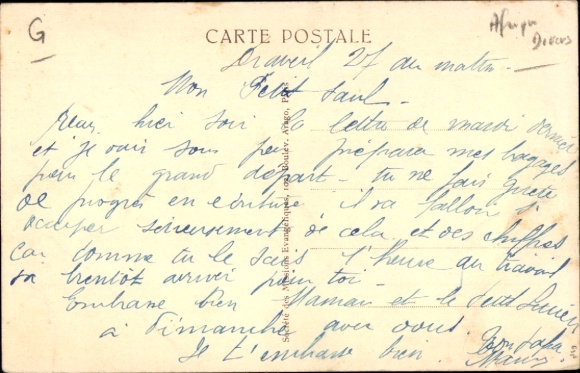 G
Afrique
Divers
CARTE POSTALE
Draveil 27 au matin
Mon Petit Paul
Reçu hier soir la lettre de mardi dernier
et je vais sous peu préparer mes bagages
pour le grand départ - tu ne fais guère
de progrès en écriture il va falloir s'
occuper sérieusement de cela et des chiffres
car comme tu le sais l'heure du travail
va bientôt arriver pour toi -
Embrasse bien Maman et le petit Lucien
à Dimanche avec vous.
Je t'embrasse bien. Ton Papa
Société des Missions Evangéliques, 102, Boulev. Arago, Paris